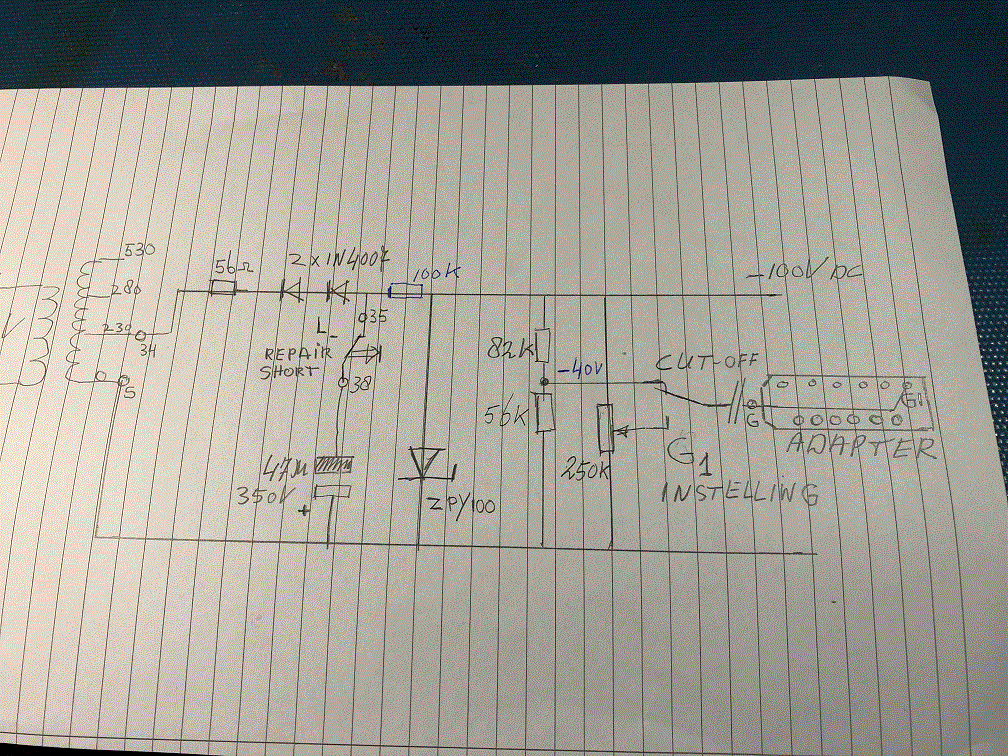 530
280
230
34
5
56Ω
2 x 1N4007
100K
-100V DC
L
35
REPAIR
SHORT
38
47μ
350V
+
ZPY100
82K
-40V
56K
250K
CUT-OFF
G
G1
ADAPTER
G1
INSTELLING